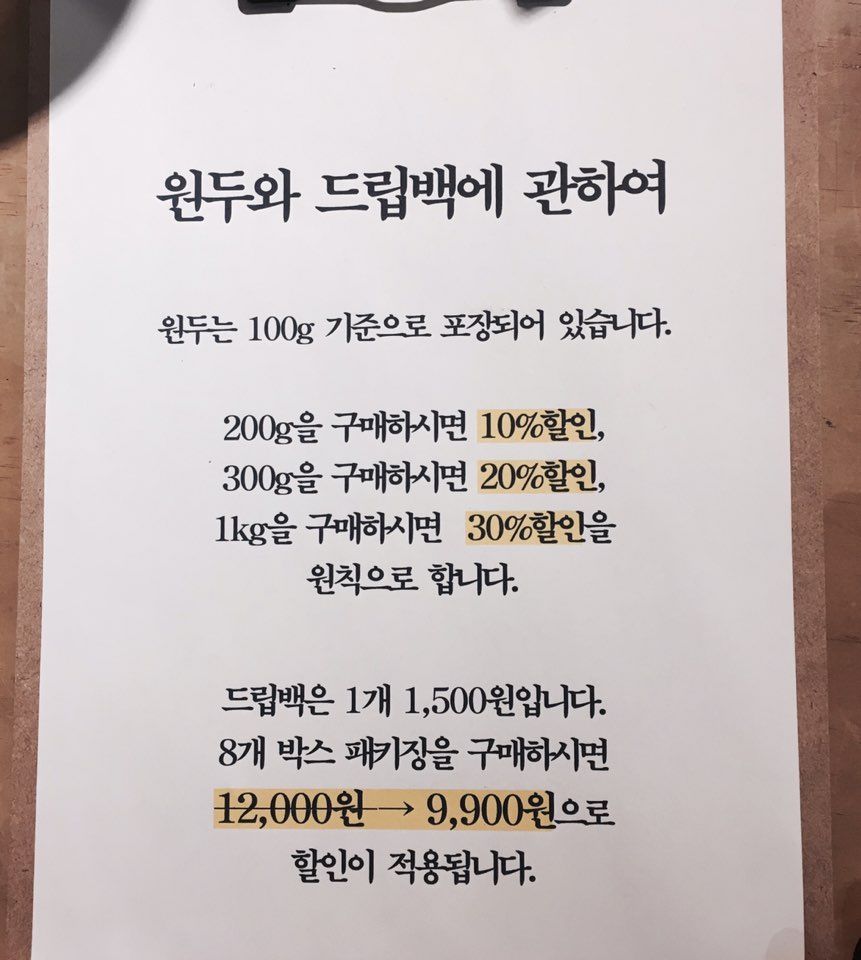 원두와 드립백에 관하여
원두는 100g 기준으로 포장되어 있습니다.
200g을 구매하시면 10%할인,
300g을 구매하시면 20%할인,
1kg을 구매하시면 30%할인을
원칙으로 합니다.
드립백은 1개 1,500원입니다.
8개 박스 패키장을 구매하시면
12,000원 → 9,900원으로
할인이 적용됩니다.